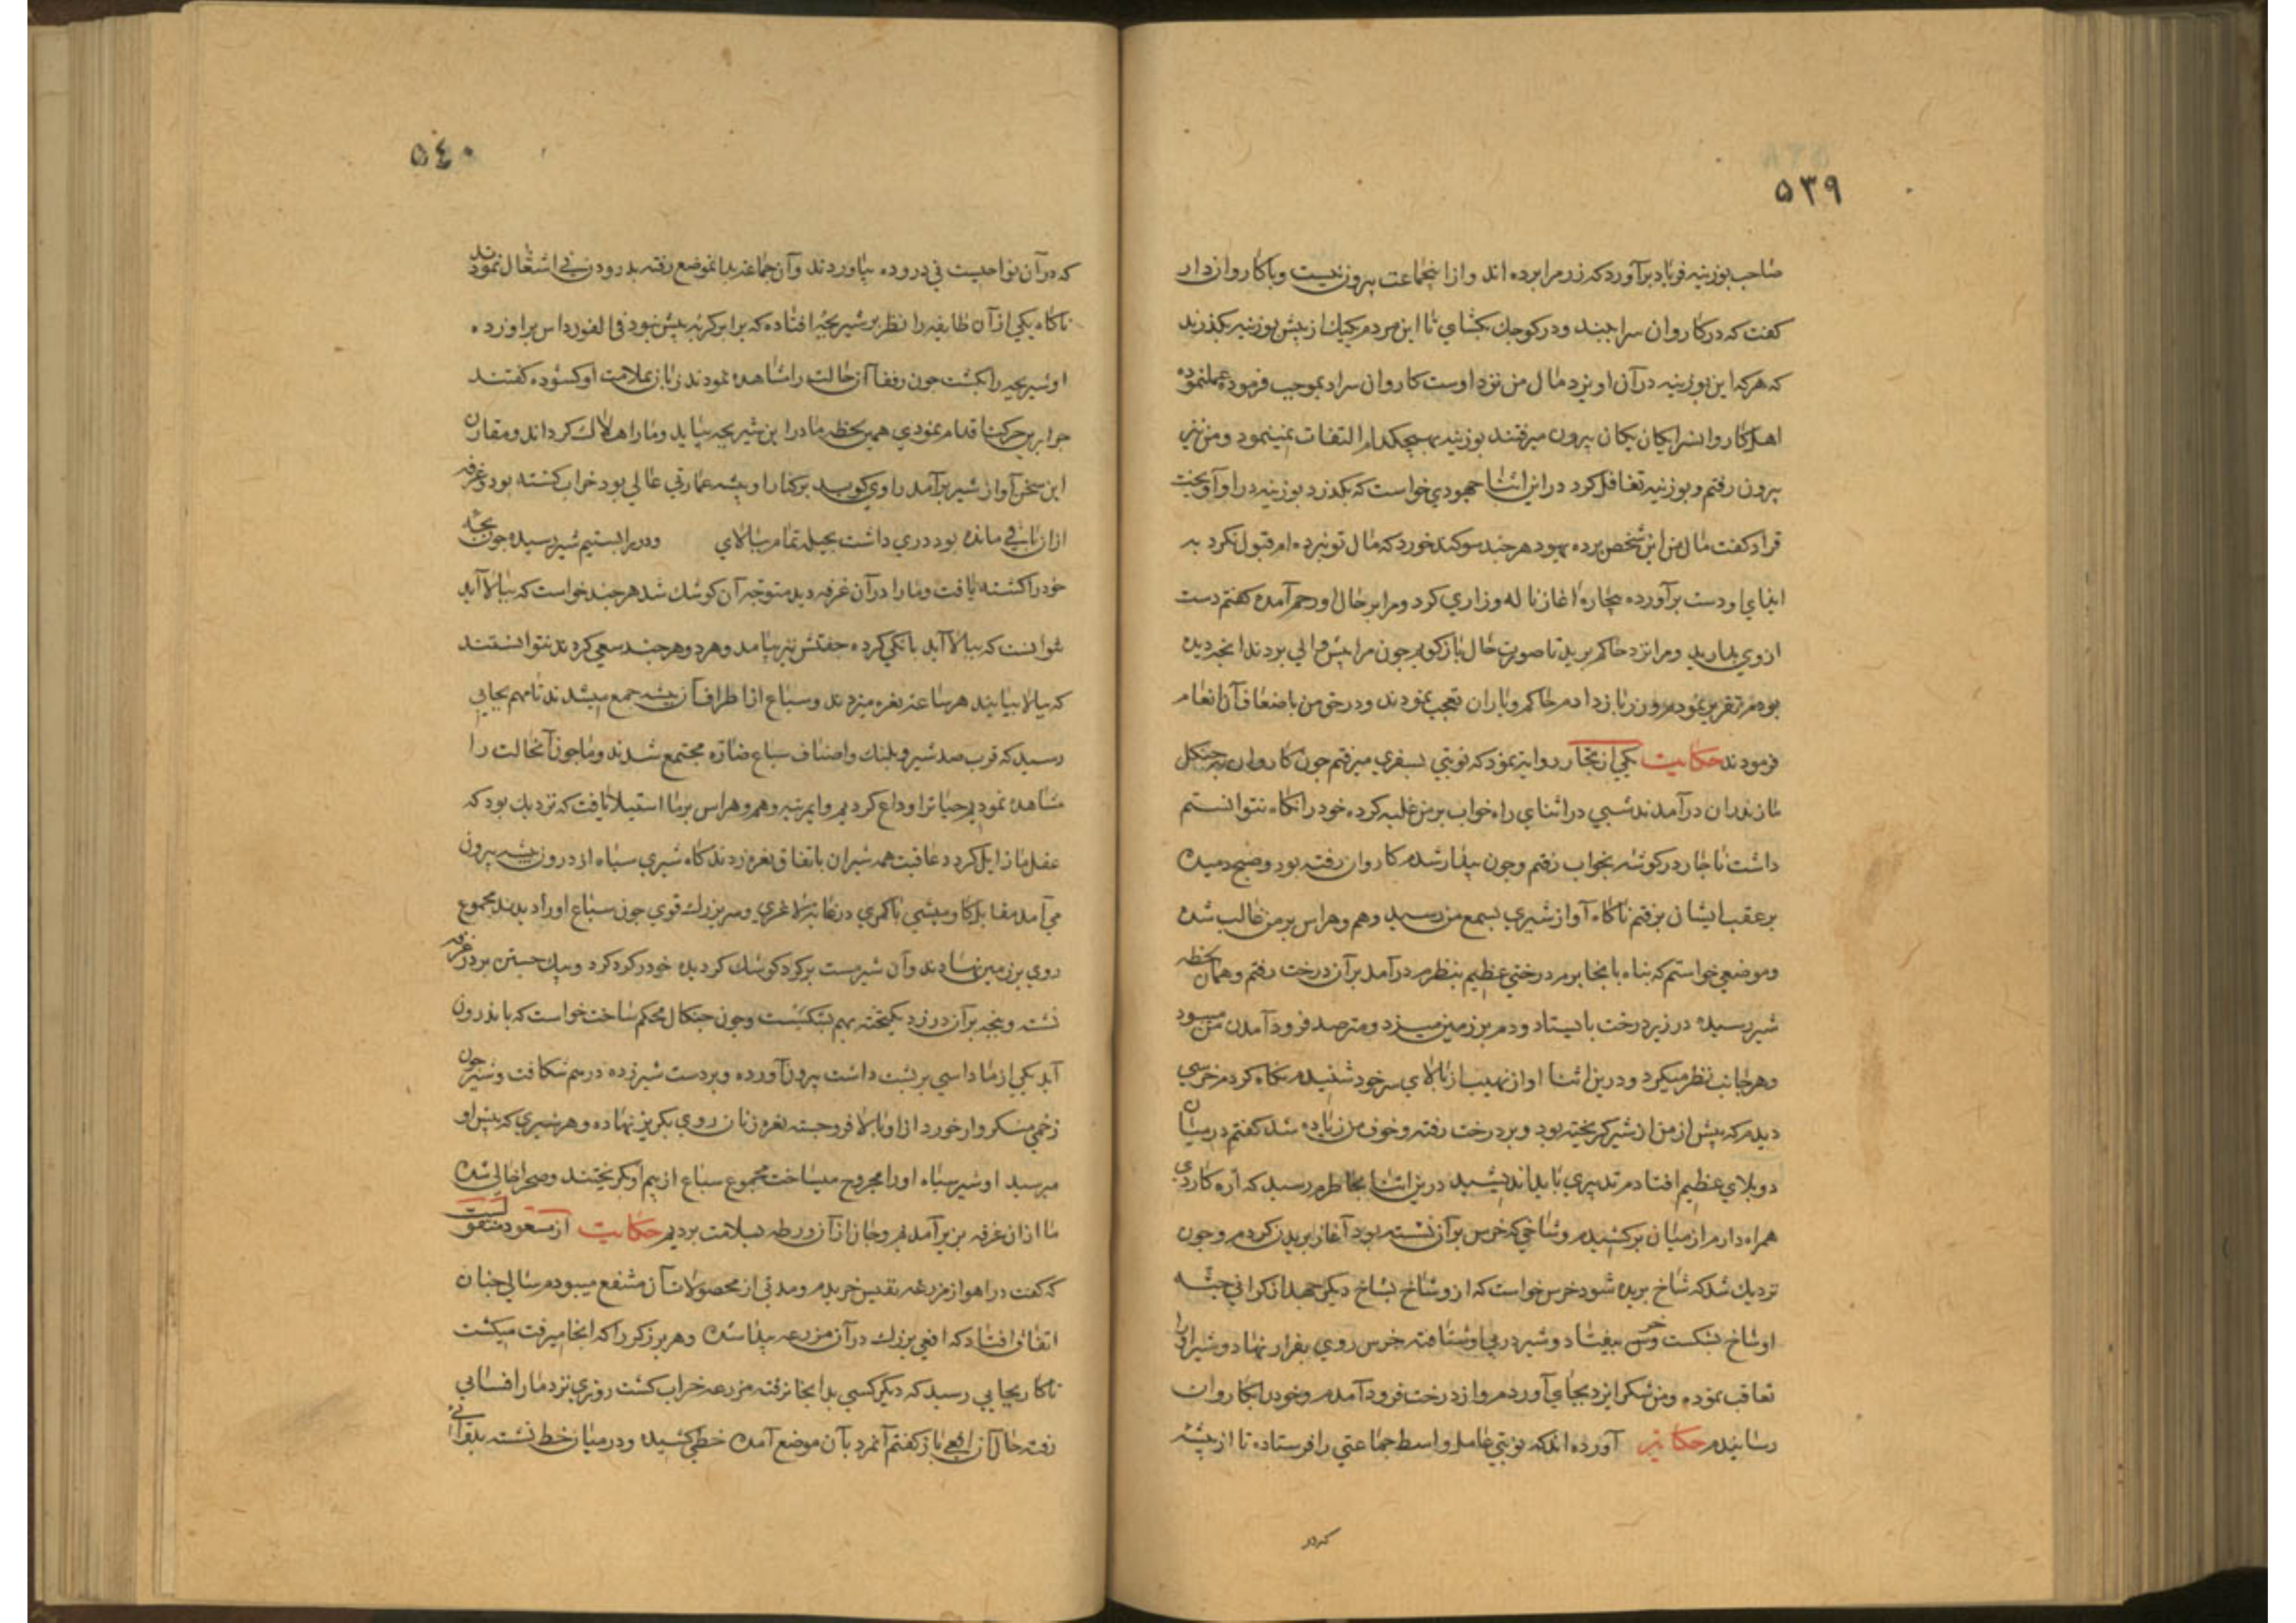 ۵۳۹
صاحب بوزینه فریاد برآورد که زر مرا برده اند و از اینجماعت بیرون نیست و با کاروانزدار
کفت که در کاروان سرا ببند و در کوجك بکشای تا این مردم یکیك از پیش بوزینه بکذرند
که هر که این بوزینه در آن اویزد مال من نزد اوست کاروان سرادار بموجب فرموده عمل نموده
اهل کاروانسرا یکان یکان بیرون میرفتند بوزینه بهیچکدام التفات نمینمود و من نیز
بیرون رفتم و بوزینه تغافل کرد در این اثنا جهودی خواست که بکذرد بوزینه در او آویخت
قراد کفت مال من این شخص برده یهود هر چند سوکند خورد که مال تو نبرده ام قبول نکرد به
ایذای او دست برآورده بیچاره اغاز ناله و زاری کرد و مرا بر حال او رحم آمده کفتم دست
ازوی بدارید و مرا نزد حاکم برید تا صورت حال باز کویم چون مرا پیش والی بردند انچه دیده
بودم تقریر نمودم و زر باز دادم حاکم و یاران تعجب نمودند و در حق من باضعاف آن انعام
فرمودند حکایت یکی از تجار روایت نمود که نوبتی بسفری میرفتم جون کاروان به جنکل
مازندران در آمدند شبی در اثنای راه خواب بر من غلبه کرده خود را نکاه نتوانستم
داشت ناچار در کوشه بخواب رفتم و جون بیدار شدم کاروان رفته بود و صبح دمیده
بر عقب ایشان برفتم ناکاه آواز شیری بسمع من رسید وهم و هراس بر من غالب شده
و موضعی خواستم که پناه بانجا برم درختی عظیم بنظرم در آمد بر آن درخت رفتم و همان لحظه
شیر رسیده در زیر درخت بایستاد و دم بر زمین میزد و مترصد فرود آمدن من میبود
و هر جانب نظر میکرد و درین اثنا اواز نهیب از بالای سر خود شنیدم نکاه کردم خرسی
دیدم که پیش از من از شیر کریخته بود و بر درخت رفته و خوف من زیاده شد کفتم در میان
دو بلای عظیم افتادم تدبیری باید اندیشید درین اثنا بخاطرم رسید که اره کاردی
همراه دارم از میان برکشیدم و شاخی که خرس بر آن نشسته بود آغاز بریدن کردم و جون
نزدیك شد که شاخ بریده شود خرس خواست که ازو شاخ بشاخ دیکر جهد از کرانی جثه
او شاخ بشکست و خرس بیفتاد و شیر در پی او شتافته خرس روی بفرار نهاد و شیر او را
تعاقب نموده و من شکر ایزد بجای آوردم و از درخت فرود آمدم و خود را بکاروان
رسانیدم حکایت آورده اند که نوبتی عامل واسط جماعتی را فرستاده تا از بیشه
که در
۵٤۰
که در آن نواحیست نی دروده بیاوردند و آن جماعت بدانموضع رفته بدرودن نی اشتغال نمودند
ناکاه یکی از آن طایفه را نظر بر شیر بچه افتاده که برابر کربه بیش نبود فی الفور داس براورده
او شیر بچه را بکشت جون رفقا آن حالت را مشاهده نمودند زبان بملامت او کشوده کفتند
چرا برین حرکت اقدام نمودی همین لحظه مادر این شیر بچه بیاید و ما را هلاك کرداند و مقارن
این سخن آواز شیر برآمد راوی کوید بر کنار او بیشه عمارتی عالی بود خراب کشته بود و غرفه
ازان باقی مانده بود دری داشت بحیله تمام ببالای و در را ببستیم شیر رسیده جون بچه
خود را کشته یافت و ما را در آن غرفه دید متوجه آن کوشك شد هر چند خواست که ببالا آید
نتوانست که ببالا آید بانکی کرده جفتش نیز بیامد و هر دو هر چند سعی کردند نتوانستند
که ببالا بیایند هر ساعت نعره میزدند و سباع از اطراف آن بیشه جمع میشدند تا مهم بجایی
رسید که قرب صد شیر و پلنك و اصناف سباع ضاره مجتمع شدند و ما جون آنحالت را
مشاهده نمودیم حیات را وداع کردیم و ایمرتبه وهم و هراس بر ما استیلا یافت که نزدیك بود که
عقل ما زایل کردد عاقبت همه شیران باتفاق نعره زدند کاه شیری سیاه از درون بیشه بیرون
می آمد مقابل کاومیشی با کمری در غایت لاغری و سر بزرك قوی جون سباع او را دیدند مجموع
روی بر زمین نهادند و آن شیر مست بر کرد کوشك کردیده خود را کرد کرد و بیك جستن بر در غرفه
نشسته و پنجه بر آن در زد یکتخته بهم بشکست و جون چنکال محکم ساخت خواست که باندرون
آید یکی از ما داسی بر پشت داشت بیرون آورده و بر دست شیر زده در هم شکافت و شیر جون
زخمی منکر وار خورد ازاو بالا فرو جسته نعره زنان روی بکریز نهاده و هر شیری که پیش او
میرسید او شیر سیاه او را مجروح میساخت مجموع سباع از بیم او بکریختند و صحرا خالی شده
ما از ان غرفه بزیر آمدیم و جان ازآن ورطه بسلامت بردیم حکایت از مسعود منقولست
که کفت در اهواز مزرعه نفیس خریدم و مدتی از محصولات آن منتفع میبودم سالی چنان
اتفاق افتاد که افعی بزرك در آن مزرعه پیدا شده و هر برزکر را که انجا میرفت میکشت
تا کار بجایی رسید که دیکر کسی بدانجا نرفته مزرعه خراب کشت روزی نزد مار افسایی
رفته حال آن افعی باز کفتم آنمرد بآن موضع آمده خطی کشیده و در میان خط نشسته بقرائت